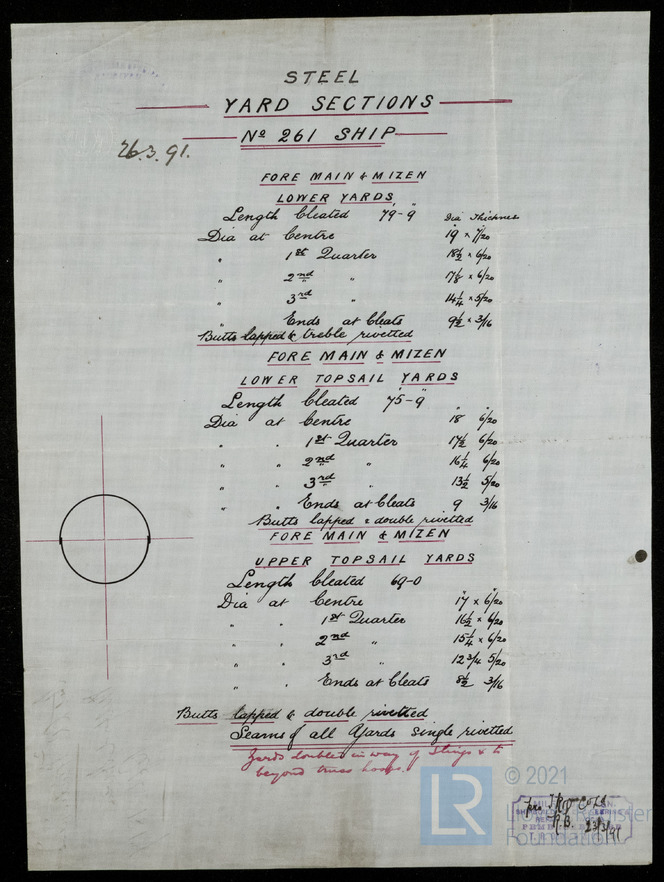 STEEL
YARD SECTIONS
Nº 261 SHIP
26.3.91.
FORE MAIN & MIZEN
LOWER YARDS
Length Cleated 79-9 Dia Thickness
Dia at Centre 19 x 7/20
" 1st Quarter 18½ x 6/20
" 2nd " 17⅛ x 6/20
" 3rd " 14¼ x 5/20
" Ends at Cleats 9½ x 3/16
Butts lapped & treble rivetted
FORE MAIN & MIZEN
LOWER TOPSAIL YARDS
Length Cleated 75-9
Dia at Centre 18 6/20
" " 1st Quarter 17½ 6/20
" " 2nd " 16¼ 6/20
" " 3rd " 13½ 5/20
" " Ends at Cleats 9 3/16
Butts lapped & double rivetted
FORE MAIN & MIZEN
UPPER TOPSAIL YARDS
Length Cleated 69-0
Dia at Centre 17 x 6/20
" " 1st Quarter 16½ x 6/20
" " 2nd " 15¼ x 6/20
" " 3rd " 12 3/4 5/20
" " Ends at Cleats 8½ 3/16
Butts lapped & double rivetted
Seams of all Yards single rivetted
Yards doubled in way of Slings & to
beyond truss hoops.
© 2021
LR
Register
Foundation
R.B. 23/3/91